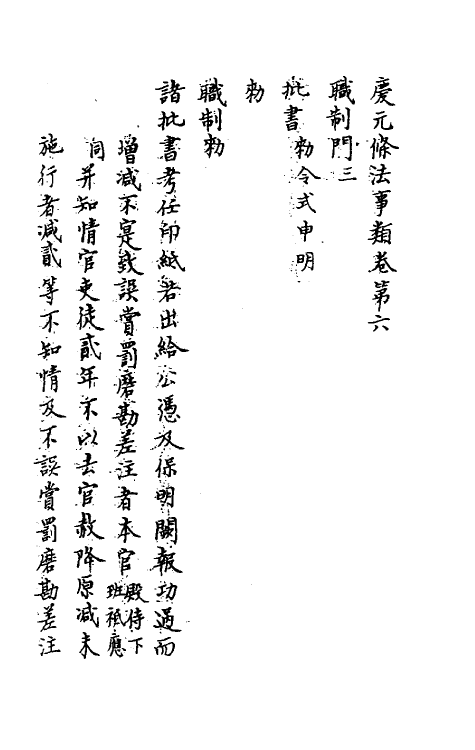 慶元條法事類卷第六
職制門三
批書勑令式申明
勑
職制勑
諸批書考任印紙若出給公憑及保明關報功過而
增減不寔致誤賞罰磨勘差注者本官殿侍下班祇應
同并知情官吏徒貳年不以去官赦降原減未
施行者減貳等不知情及不誤賞罰磨勘差注